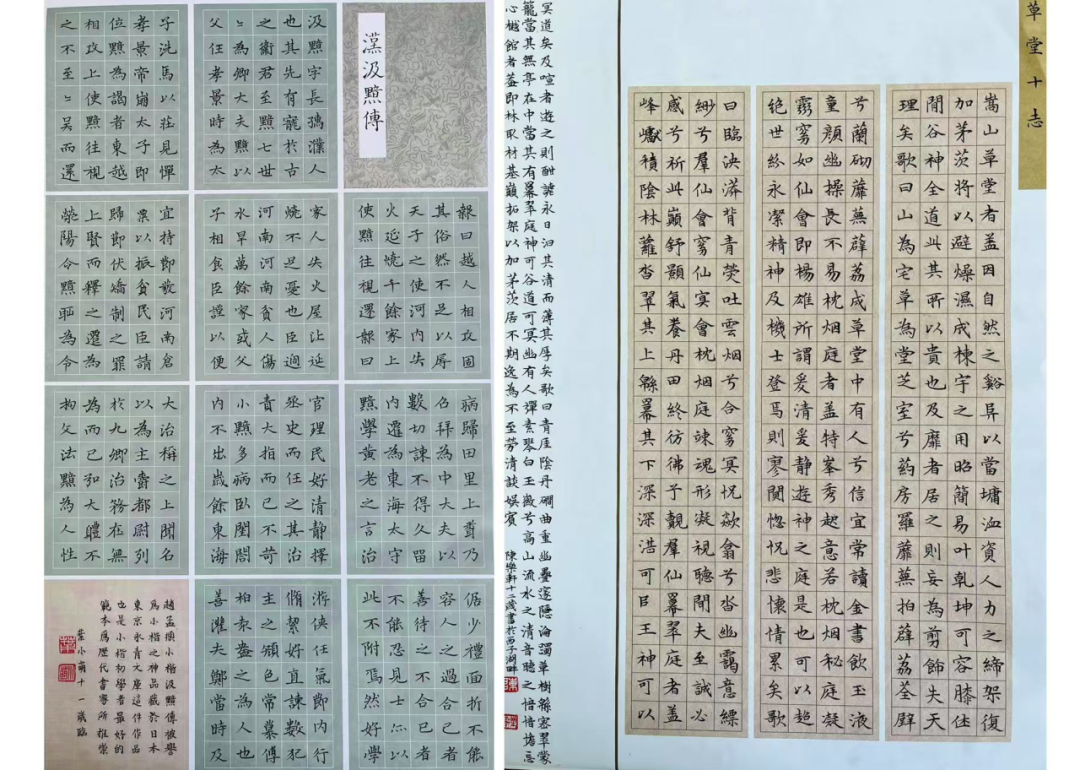 漢汲黯傳
汲黯字長孺濮人
也其先有寵於古
之衛君至黯七世
〻為卿大夫黯以
父任孝景時為太
子洗馬以莊見憚
孝景帝崩太子即
位黯為謁者東越
相攻上使黯往視
之不至〻吳而還
報曰越人相攻固
其俗然不足以辱
天子之使河內失
火延燒千餘家上
使黯往視還報曰
家人失火屋比延
燒不足憂也臣過
河南河南貧人傷
水旱萬餘家或父
子相食臣謹以便
宜持節發河南倉
粟以振貧民臣請
歸節伏矯制之罪
上賢而釋之遷為
滎陽令黯恥為令
病歸田里上聞乃
召拜為中大夫以
數切諫不得久留
內遷為東海太守
黯學黃老之言治
官理民好清靜擇
丞史而任之其治
責大指而已不苛
小黯多病臥閨閤
內不出歲餘東海
大治稱之上聞名
以為主爵都尉列
於九卿治務在無
為而已弘大體不
拘文法黯為人性
倨少禮面折不能
容人之過合己者
善待之不合己者
不能忍見士亦以
此不附焉然好學
游俠任氣節內行
脩絜好直諫數犯
主之顏色常慕傅
柏袁盎之為人也
善灌夫鄭當時及
趙孟頫小楷汲黯傳被譽
為小楷之神品藏於日本
東京永青文庫這件作品
也是小楷初學者最好的
範本為歷代書家所推崇
葉小萌十一歲臨
草堂十志
嵩山草堂者盖因自然之谿阜以當墉洫資人力之締架復
加茅茨將以避燥濕成棟宇之用昭簡易叶乾坤可容膝休
閒谷神全道此其所以貴也及靡者居之則妄為剪飾失天
理矣歌曰山為宅草為堂芝室兮葯房羅蘼蕪拍薜荔荃壁
兮蘭砌蘼蕪薜荔成草堂中有人兮信宜常讀金書飲玉液
童顏幽操長不易枕烟庭者盖特峯秀起意若枕烟秘庭凝
靄窅如仙會即楊雄所謂爰清爰静遊神之庭是也可以超
絶世紛永潔精神及機士登焉則寥闃惚怳悲懷情累矣歌
曰臨泱漭背青熒吐雲烟兮合窅冥怳歘翕兮沓幽靄意縹
緲兮羣仙會窅仙冥會枕烟庭竦魂形凝視聽聞夫至誠必
感兮祈此巔舒顥氣養丹田終彷彿兮覿羣仙冪翠庭者盖
峰巘積陰林蘿沓翠其上緜冪其下深深湛可㠯王神可以
冥道矣及喧者遊之則酣謔永日汩其清而薄其厚矣歌曰青厓陰丹磵曲重幽疊邃隱淪躅草樹緜密翠蒙
籠當其無亭在中當其有冪翠庭神可谷道可冥幽有人彈素琴白玉徽兮高山流水之清音聽之愔愔澹忘
心樾館者盖即林取材基巔拓架以加茅茨居不期逸為不至勞清談娛賓 陳樂軒十二歲書於西子湖畔